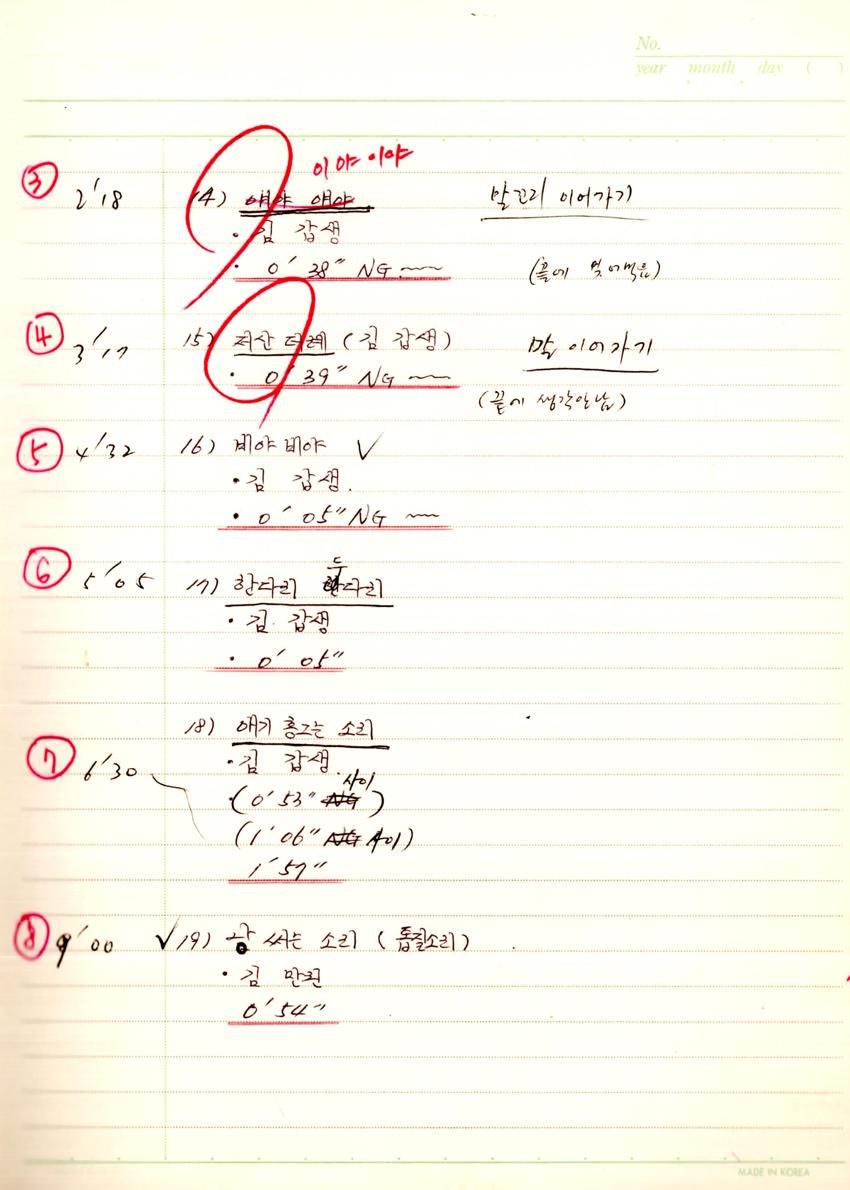 No.
year month day ( )
이야이야
③ 2'18 14) 얘야 얘야 말꼬리 이어가기
• 김 갑생
• 0' 38" NG (끝에
④ 3'17 15) 저산 더레 (김 갑생) 말 이어가기
• 0' 39" NG
(끝에 생각안남)
⑤ 4'32 16) 비야비야 ✓
• 김 갑생.
• 0' 05" NG
두
⑥ 5'05 17) 한다리 다리
• 김 갑생
• 0' 05"
18) 애기 흥그는 소리
⑦ 6'30 • 김 갑생.
사이
(0' 53" NG)
(1' 06" NG 사이)
1' 57"
⑧ 9'00 ✓ 19) 쓰는 소리 (톱질소리)
• 김 만진
0' 54"
MADE IN KOREA